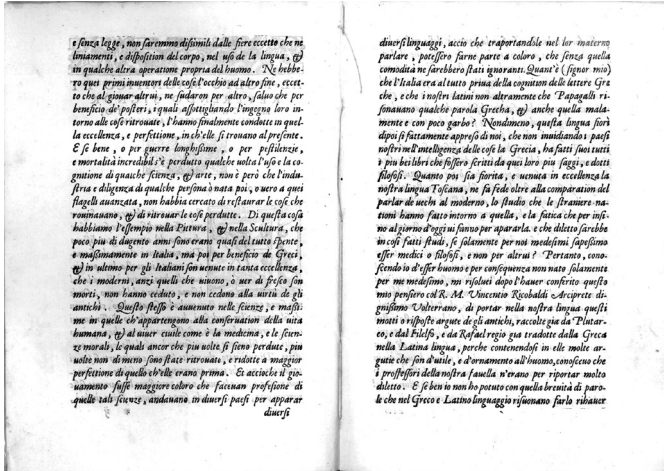 e senza legge, non saremmo dissimili dalle fiere eccetto che ne
liniamenti, e disposition del corpo, nel uso de la lingua, &
in qualche altra operatione propria del huomo. Ne hebbe-
ro que primi inventori delle cose l'occhio ad altro fine, eccet-
to che al giouar altrui, ne sudaron per altro, saluo che per
beneficio de' posteri, i quali assottigliando l'ingegno loro in-
torno alle cose ritrouate, l'hanno finalmente condotte in quel-
la eccellenza, e perfettione, in ch'elle si trouano al presente.
E se bene, o per guerre longhissime, o per pestilenzie,
e mortalità incredibili; è perduto qualche uolta l'uso e la co-
gnitione di qualche scienza, & arte, non è però che l'indu-
stria e diligenza di qualche persona ò nata poi, o uero a quei
flagelli auanzata, non habbia cercato di restaurar le cose che
rouinauano, & di ritrouar le cose perdutte. Di questa cosa
habbiamo l'essempio nella Pittura, & nella Scultura, che
poco piu di dugento anni sono erano quasi del tutto spente,
e maßimamente in Italia, ma poi per beneficio de Greci,
& in ultimo per gli Italiani son uenute in tanta eccellenza,
che i moderni, anzi quelli che uiuono, ò uer di fresco son
morti, non hanno ceduto, e non cedono alla virtù de gli
antichi. Questo stesso è auuenuto nelle scienze, e maßi-
me in quelle ch'appartengono alla conseruation della vita
humana, & al uiuer ciuile come è la medicina, e le scien-
ze morali, le quali ancor che piu uolte si sieno perdute, piu
uolte non di meno sono state ritrouate, e ridotte a maggior
perfettione di quello ch'elle erano prima. Et accioche il gio-
uamento fusse maggiore coloro che faceuan profesione di
quelle tali scienze, andauano in diuersi paesi per apparar
diuersi
diuersi linguaggi, accio che traportandole nel lor materno
parlare, potessero farne parte a coloro, che senza quella
comodità ne sarebbero stati ignoranti. Quant'è (signor mio)
che l'Italia era al tutto priua della cognition delle lettere Gre
che, e che i nostri latini non altramente che Papagalli ri-
sonauano qualche parola Grecha, & anche quella mala-
mente e con poco garbo? Nondimeno, questa lingua fiorì
dipoi si fattamente appreso di noi, che non inuidiando i paesi
nostri nell'intelligenza delle cose la Grecia, ha fatti suoi tutti
i piu bei libri che fossero scritti da quei loro piu saggi, e dotti
filosofi. Quanto poi sia fiorita, e uenuta in eccellenza la
nostra lingua Toscana, ne fa fede oltre alla comparation del
parlar de uechi al moderno, lo studio che le straniere na-
tioni hanno fatto intorno a quella, e la fatica che per insi-
no al giorno d'oggi ui fanno per apararla. e che diletto sarebbe
in cosi fatti studi, se solamente per noi medesimi sapeßimo
esser medici o filosofi, e non per altrui? Pertanto, cono-
scendo io d'esser huomo e per consequenza non nato solamente
per me medesimo, mi risoluei dopo l'hauer conferito questo
mio pensiero col R. M. Vincentio Ricobaldi Arciprete di-
gnißimo Volterrano, di portar nella nostra lingua questi
motti o risposte argute de gli antichi, raccolte gia da Plutar-
co, e dal Filelfo, e da Rafael regio gia tradotte dalla Greca
nella Latina lingua, perche contenendosi in elle molte ar-
gutie che son d'utile, e d'ornamento all'huomo, conosceuo che
i professori della nostra fauella n'erano per riportar molto
diletto. E se ben io non ho potuto con quella breuità di paro-
le che nel Greco e Latino linguaggio risuonano farlo rihauer